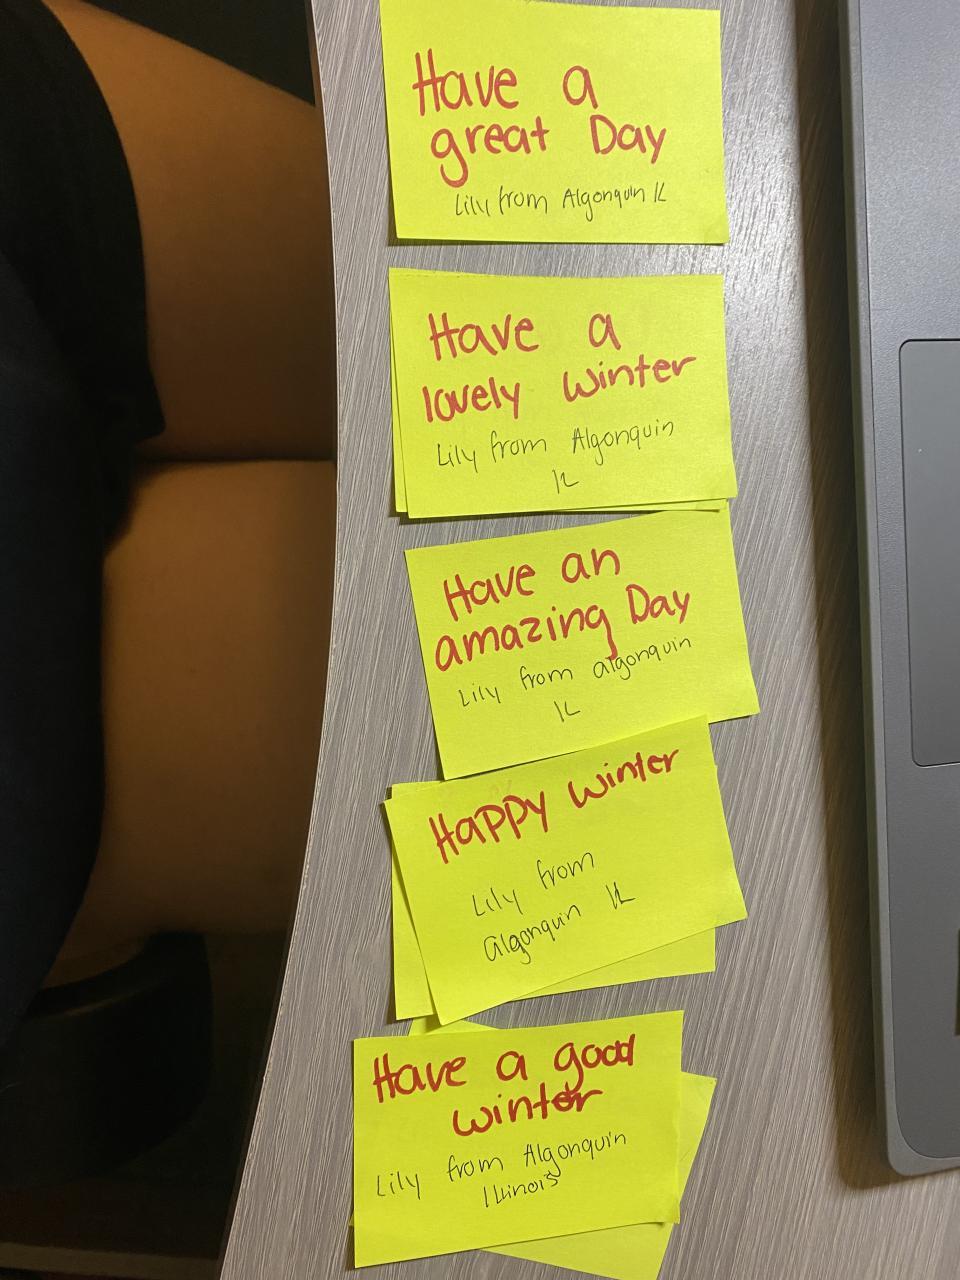 Have a
great Day
Lily from Algonquin IL
Have a
lovely winter
Lily from Algonquin
IL
Have an
amazing Day
Lily from algonquin
IL
Happy winter
Lily from
algonquin IL
Have a good
winter
Lily from Algonquin
Illinois